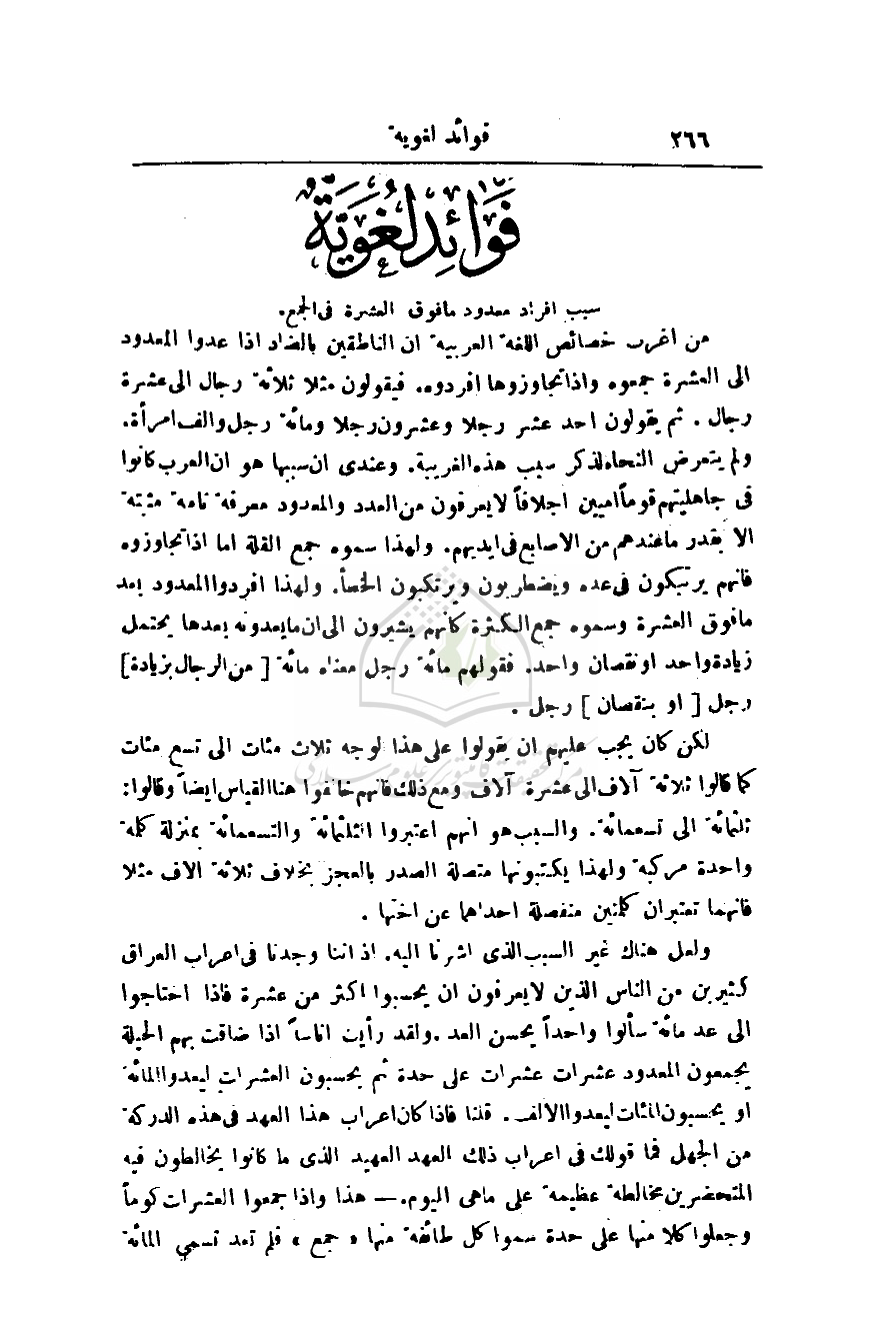 ٢٦٦
فوائد لغوية
فَوَائِدُ لُغَوِيَّةٌ
سبب افراد معدود مافوق العشرة فى الجمع.
من أغرب خصائص اللغة العربية ان الناطقين بالضاد اذا عدوا المعدود
الى العشرة جمعوه واذا تجاوزوها افردوه. فيقولون مثلا ثلاثة رجال الى عشرة
رجال. ثم يقولون احد عشر رجلا وعشرون رجلا ومائة رجل والف امرأة.
ولم يتعرض النحاه لذكر سبب هذه الغريبة. وعندى ان سببها هو ان العرب كانوا
فى جاهليتهم قوماً اميين اجلافاً لايعرفون من العدد والمعدود معرفة تامة مثبتة
الا بقدر ماعندهم من الاصابع فى ايديهم. ولهذا سموه جمع القلة اما اذا تجاوزوه
فانهم يرتبكون فى عده ويضطربون ويرتكبون الخطأ. ولهذا افردوا المعدود بعد
مافوق العشرة وسموه جمع الكثرة كأنهم يشيرون الى ان مايعدونه بعدها يحتمل
زيادة واحد او نقصان واحد. فقولهم مائة رجل معناه مائة [ من الرجال بزيادة ]
رجل [ او بنقصان ] رجل.
لكن كان يجب عليهم ان يقولوا على هذا لوجه ثلاث مئات الى تسع مئات
كما قالوا ثلاثة آلاف الى عشرة آلاف ومع ذلك فانهم خالفوا هنا القياس ايضاً وقالوا:
ثلثمائة الى تسعمائة. والسبب هو انهم اعتبروا الثلثمائة والتسعمائة بمنزلة كلمة
واحدة مركبة ولهذا يكتبونها متصلة الصدر بالعجز بخلاف ثلاثة الاف مثلا
فانهما تعتبران كلمتين منفصلة احداهما عن اختها.
ولعل هناك غير السبب الذى اشرنا اليه. اذ اننا وجدنا فى اعراب العراق
كثيرين من الناس الذين لايعرفون ان يحسبوا اكثر من عشرة فاذا احتاجوا
الى عد مائة سألوا واحداً يحسن العد. ولقد رأيت اناساً اذا ضاقت بهم الحيلة
يجمعون المعدود عشرات عشرات على حدة ثم يحسبون العشرات ليعدوا المائة
او يحسبون المئات ليعدوا الالف. قلنا فاذا كان اعراب هذا العهد فى هذه الدركة
من الجهل فما قولك فى اعراب ذلك العهد العهيد الذى ما كانوا يخالطون فيه
المتحضرين مخالطة عظيمة على ماهى اليوم. — هذا واذا جمعوا العشرات كوماً
وجعلوا كلا منها على حدة سموا كل طائفة منها « جمع » فلم تعد تسمي المائة